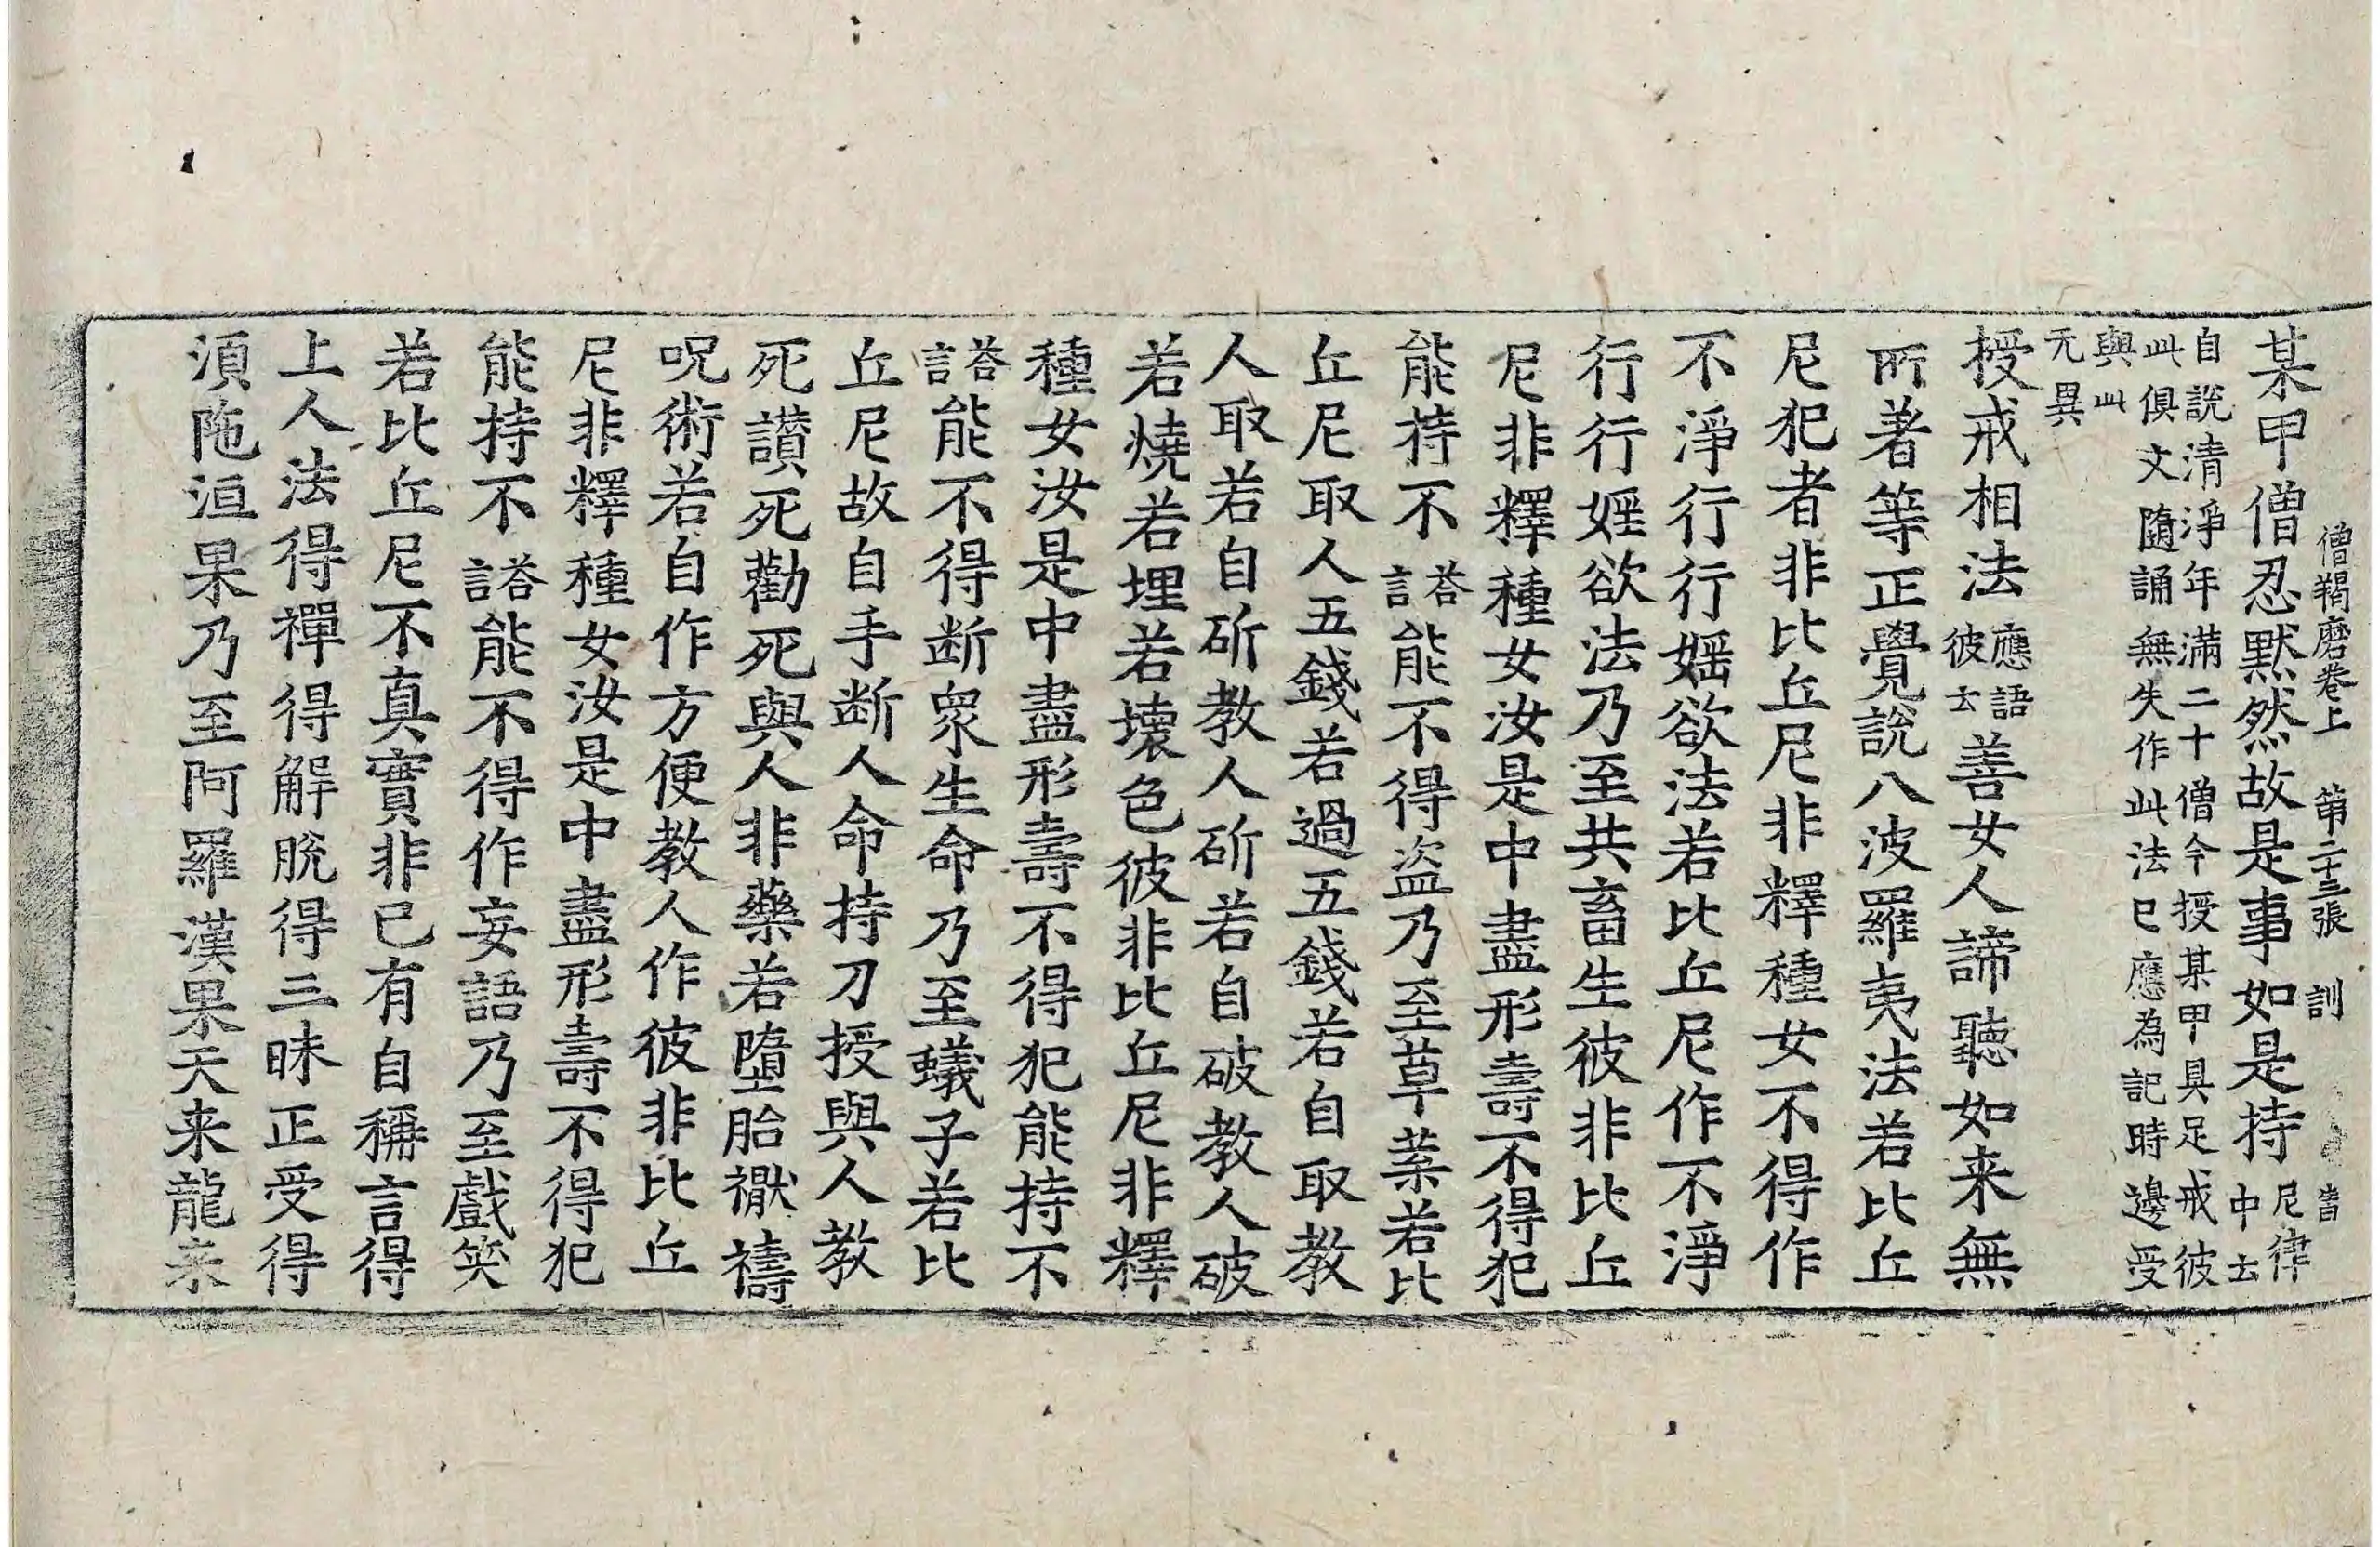 僧羯磨卷上　第二十三張　訓
某甲僧忍默然故是事如是持尼律中云
自說清淨年滿二十僧今授某甲具足戒彼
此俱文隨誦無失作此法已應為記時邊受
與此
无異
授戒相法應語彼云善女人諦聽如来無
所著等正覺說八波羅夷法若比丘
尼犯者非比丘尼非釋種女不得作
不淨行行婬欲法若比丘尼作不淨
行行婬欲法乃至共畜生彼非比丘
尼非釋種女汝是中盡形壽不得犯
能持不答言能不得盜乃至草葉若比
丘尼取人五錢若過五錢若自取教
人取若自斫教人斫若自破教人破
若燒若埋若壞色彼非比丘尼非釋
種女汝是中盡形壽不得犯能持不
答言能不得断衆生命乃至蟻子若比
丘尼故自手断人命持刀授與人教
死讃死勸死與人非藥若墮胎禩禱
呪術若自作方便教人作彼非比丘
尼非釋種女汝是中盡形壽不得犯
能持不答言能不得作妄語乃至戲笑
若比丘尼不真實非已有自稱言得
上人法得禪得解脫得三昧正受得
湏陁洹果乃至阿羅漢果天来龍来